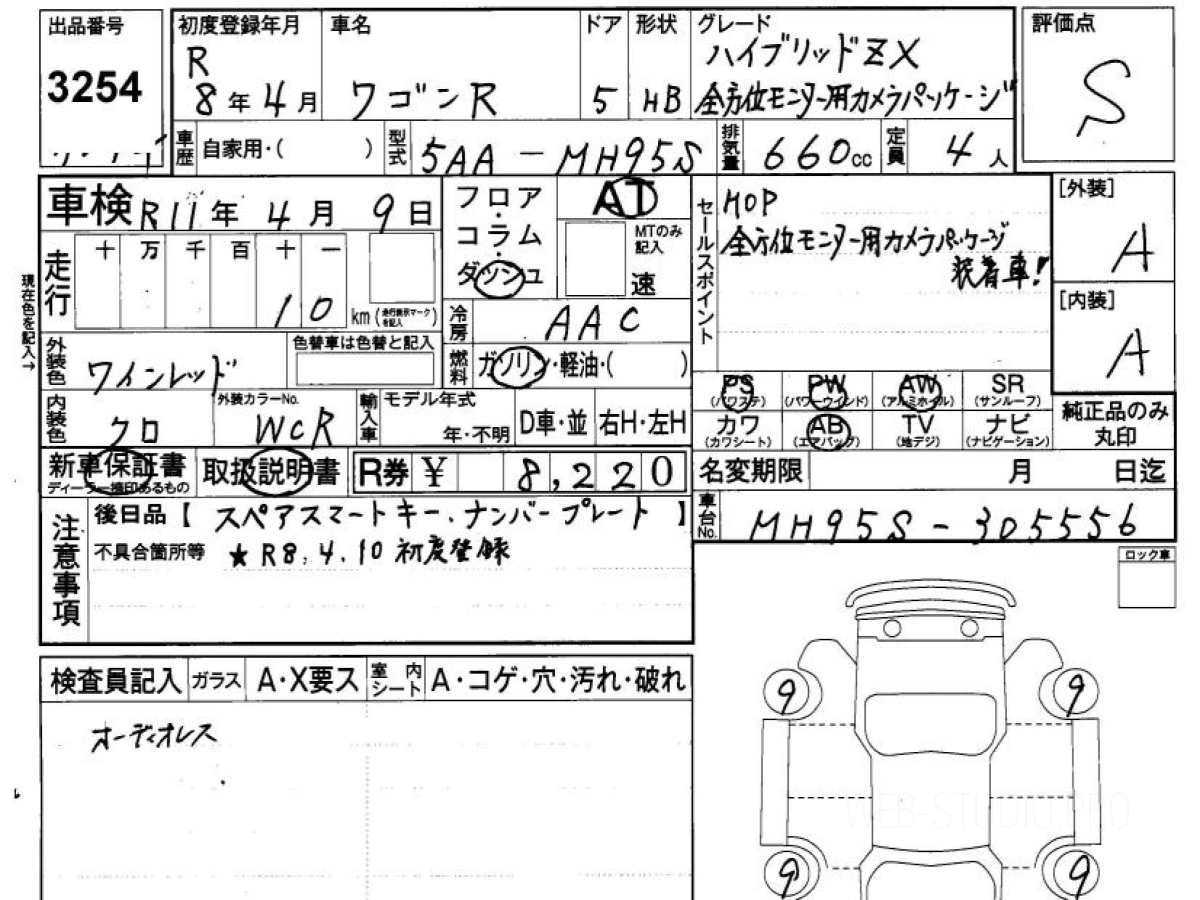 出品番号
3254
初度登録年月
R
8年4月
車名
ワゴンR
ドア
5
形状
HB
グレード
ハイブリッドZX
全方位モニター用カメラパッケージ
評価点
S
車歴
自家用・( )
型式
5AA-MH95S
排気量
660cc
定員
4人
車検 R11年4月9日
フロア・コラム・ダッシュ
AT
MTのみ記入
速
セールスポイント
HOP
全方位モニター用カメラパッケージ
装着車!
[外装]
A
[内装]
A
現在色を記入→
走行
十万千百十一
10
km(走行表示マークを記入)
冷房
AAC
外装色
ワインレッド
色替車は色替と記入
燃料
ガソリン・軽油・( )
内装色
クロ
外装カラーNo.
WCR
輸入車
モデル年式
年・不明
D車・並
右H・左H
PS
(パワステ)
PW
(パワーウインド)
AW
(アルミホイル)
SR
(サンルーフ)
カワ
(カワシート)
AB
(エアバッグ)
TV
(地デジ)
ナビ
(ナビゲーション)
純正品のみ
丸印
新車保証書
ディーラー捺印あるもの
取扱説明書
R券 ¥ 8,220
名変期限 月 日迄
注意事項
後日品【スペアスマートキー、ナンバープレート】
不具合箇所等 ★R8.4.10 初度登録
車台No.
MH95S-305556
ロック車
検査員記入
ガラス
A・X要ス
室内シート
A・コゲ・穴・汚れ・破れ
オーディオレス
9
9
WEB-STUDIO.PRO
9
9